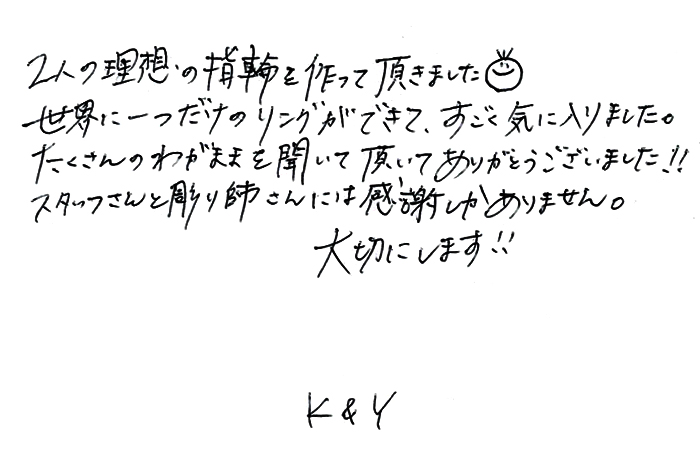 2人の理想の指輪を作って頂きました
世界に一つだけのリングができて、すごく気に入りました。
たくさんのわがままを聞いて頂いてありがとうございました!!
スタッフさんと彫り師さんには感謝しかありません。
大切にします!!
K & Y